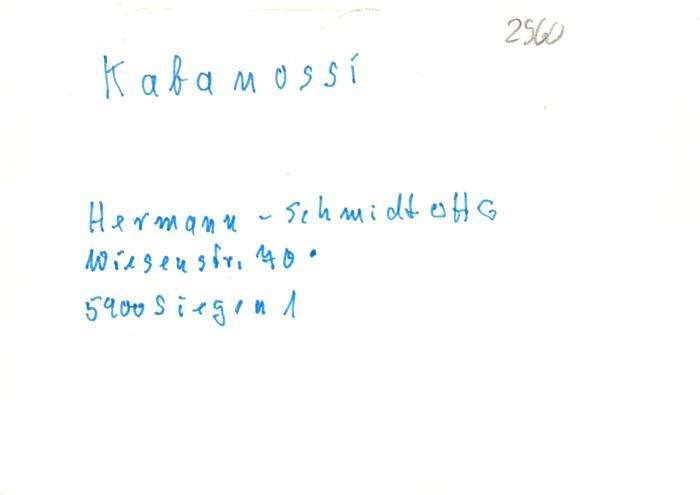 2960
Kabanossi
Hermann - Schmidt OHG
Wiesenstr. 40.
5900 Siegen 1